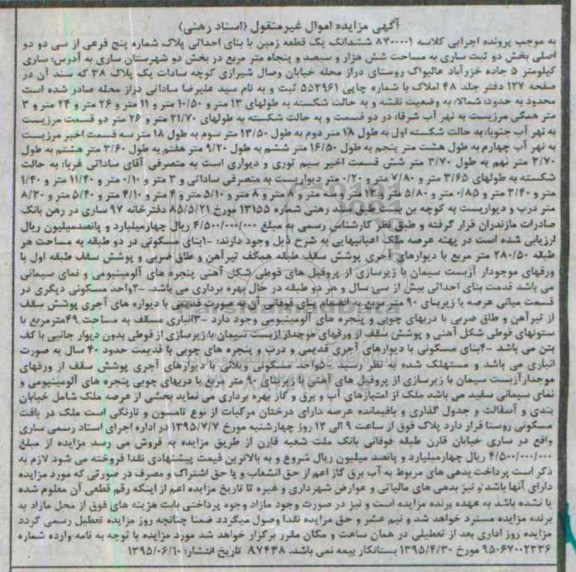 آگهی مزایده اموال غیرمنقول (اسناد رهنی)
به موجب پرونده اجرایی کلاسه ۸۷۰۰۰۰۱ ششدانگ یک قطعه زمین با بنای احداثی پلاک شماره پنج فرعی از سی دو دو
اصلی بخش دو ثبت ساری به مساحت شش هزار و سیصد و پنجاه متر مربع در بخش دو شهرستان ساری به آدرس: ساری
کیلومتر ۵ جاده خزرآباد عالیواک روستای دراز محله خیابان وصال شیرازی کوچه سادات یک پلاک ۳۸ که سند آن در
صفحه ۱۲۷ دفتر جلد ۴۸ املاک با شماره چاپی ۵۵۲۹۶۱ ثبت و به نام سید علیرضا ساداتی دراز محله صادر شده است
محدود به حدود: شمالا: به وضعیت نقشه و به حالت شکسته به طولهای ۱۳ متر و ۱۰/۵۰ متر و ۱۱ متر و ۲۶ متر و ۲۴ متر و ۳
متر همگی مرزیست به نهر آب شرقا: در دو قسمت و به حالت شکسته به طولهای ۳۱/۷۰ متر و ۲۶ متر دو قسمت مرزیست
به نهر آب جنوبا: به حالت شکسته اول به طول ۱۸ متر دوم به طول ۱۳/۵۰ متر سوم به طول ۱۸ متر سه قسمت اخیر مرزیست
به نهر آب چهارم به طول هشت متر پنجم به طول ۱۶/۵۰ متر ششم به طول ۹/۲۰ متر هفتم به طول ۳/۶۰ متر هشتم به طول
۳/۷۰ متر نهم به طول ۳/۷۰ متر شش قسمت اخیر سیم توری و دیواری است به متصرفی آقای ساداتی غربا: به حالت
شکسته به طولهای ۳/۶۵ متر و ۷/۸۰ متر و ۰/۲۰ متر دیواریست به متصرفی ساداتی و ۳ متر و ۰/۱۰ متر و ۱۱/۴۰ متر و ۱/۴۰
متر و ۳/۴۰ متر و ۰/۸۵ متر و ۵/۸۰ متر و ۱۳ متر و سه متر و ۷ متر و ۸ متر و ۱۰/۵ متر و ۴ متر و ۴/۱۰ متر و ۵/۴۰ متر و ۸/۳۰
متر درب و دیواریست به کوچه بن بست طبق سند رهنی شماره ۱۳۱۵۵ مورخ ۸۵/۵/۲۱ دفترخانه ۹۷ ساری در رهن بانک
صادرات مازندران قرار گرفته و طبق نظر کارشناس رسمی به مبلغ ۴/۵۰۰/۰۰۰/۰۰۰ ریال چهارمیلیارد و پانصدمیلیون ریال
ارزیابی شده است در پهنه عرصه ملک اعیانیهایی به شرح ذیل وجود دارند: ۱- بنای مسکونی در دو طبقه به مساحت هر
طبقه ۲۸۰/۵۰ متر مربع با دیوارهای آجری پوشش سقف طبقه همکف تیرآهن و طاق ضربی و پوشش سقف طبقه اول با
ورقهای موجدار آزبست سیمان با زیرسازی از پروفیل های قوطی شکل آهنی پنجره های آلومینیومی و نمای سیمانی
می باشد قدمت بنای احداثی بیش از سی سال و هر دو طبقه در حال بهره برداری می باشد. ۲- واحد مسکونی دیگری در
قسمت میانی عرصه با زیربنای ۹۰ متر مربع به انضمام بنای فوقانی آن به صورت قدیمی با دیواره های آجری پوشش سقف
از تیرآهن و طاق ضربی با دربهای چوبی و پنجره های آلومینیومی وجود دارد ۳- انباری مسقف به مساحت ۴۹ مترمربع با
ستونهای قوطی شکل آهنی و پوشش سقف از ورقهای موجدار ازبست سیمان با زیرسازی از قوطی بدون دیوار جانبی با کف
بتن می باشد ۴- بنای مسکونی با دیوارهای آجری قدیمی و درب و پنجره های چوبی با قدیمت حدود ۴۰ سال به صورت
انباری می باشد و مستهلک شده به نظر رسید ۵- واحد مسکونی ویلائی با دیوارهای آجری پوشش سقف از ورقهای
موجدار آزبست سیمان با زیرسازی از پروفیل های آهنی با زیربنای ۹۰ متر مربع با دربهای چوبی پنجره های آلومینیومی و
نمای سیمانی سفید می باشد ملک از امتیازهای آب و برق و گاز بهره برداری می نماید بخشی از عرصه ملک شامل خیابان
بندی و آسفالت و جدول گذاری و باقیمانده عرصه دارای درختان مرکبات از نوع تامسون و نارنگی است ملک در بافت
مسکونی روستا قرار دارد پلاک فوق از ساعت ۹ الی ۱۲ روز چهارشنبه مورخ ۱۳۹۵/۷/۷ در اداره اجرای اسناد رسمی ساری
واقع در ساری خیابان قارن طبقه فوقانی بانک ملت شعبه قارن از طریق مزایده به فروش می رسد مزایده از مبلغ
۴/۵۰۰/۰۰۰/۰۰۰ ریال چهارمیلیارد و پانصد میلیون ریال شروع و به بالاترین قیمت پیشنهادی نقدا فروخته می شود لازم به
ذکر است پرداخت بدهی های مربوط به آب برق گاز اعم از حق انشعاب و یا حق اشتراک و مصرف در صورتی که مورد مزایده
دارای آنها باشد و نیز بدهی های مالیاتی و عوارض شهرداری و غیره تا تاریخ مزایده اعم از اینکه رقم قطعی آن معلوم شده
یا نشده باشد به عهده برنده مزایده است و نیز در صورت وجود مازاد وجوه پرداختی بابت هزینه های فوق از محل مازاد به
برنده مزایده مسترد خواهد شد و نیم عشر و حق مزایده نقدا وصول میگردد ضمنا چنانچه روز مزایده تعطیل رسمی گردد
مزایده روز اداری بعد از تعطیلی در همان ساعت و مکان مقرر برگزار خواهد شد مورد مزایده با توجه به نامه وارده شماره
۹۵۰۶۷۰۰۲۳۳۶ مورخ ۱۳۹۵/۴/۳۰ بستانکار بیمه نمی باشد. ۸۷۴۳۸ تاریخ انتشار: ۱۳۹۵/۰۶/۱۰